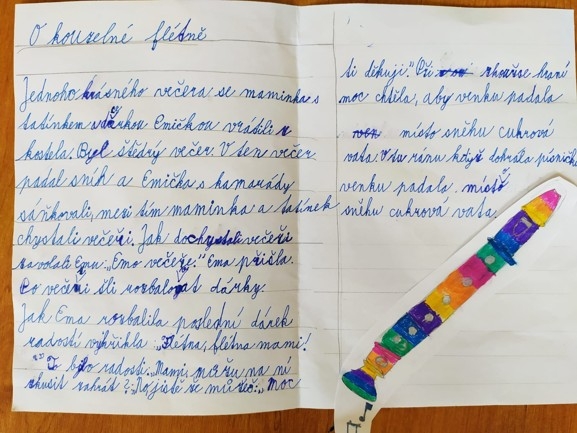 O kouzelné flétně
Jednoho krásného večera se maminka s
tatínkem a dcerkou Emičkou vrátili z
kostela. Byl štědrý večer. V ten večer
padal sníh a Emička s kamarády
sáňkovali, mezi tím maminka a tatínek
chystali večeři. Jak dochystali večeři
zavolali Emu: „Emo večeře." Ema přišla.
Po večeři šli rozbalovat dárky.
Jak Ema rozbalila poslední dárek
radostí vykřikla „Flétna, flétna mami!
To bylo radosti. „Mami, můžu na ní
zkusit zahrát? „No jistě že můžeš." „Moc
ti děkuji." Při zkoušce hraní
moc chtěla, aby venku padala
místo sněhu cukrová
vata. V tu ránu když dohrála písničku
venku padala místo
sněhu cukrová vata.